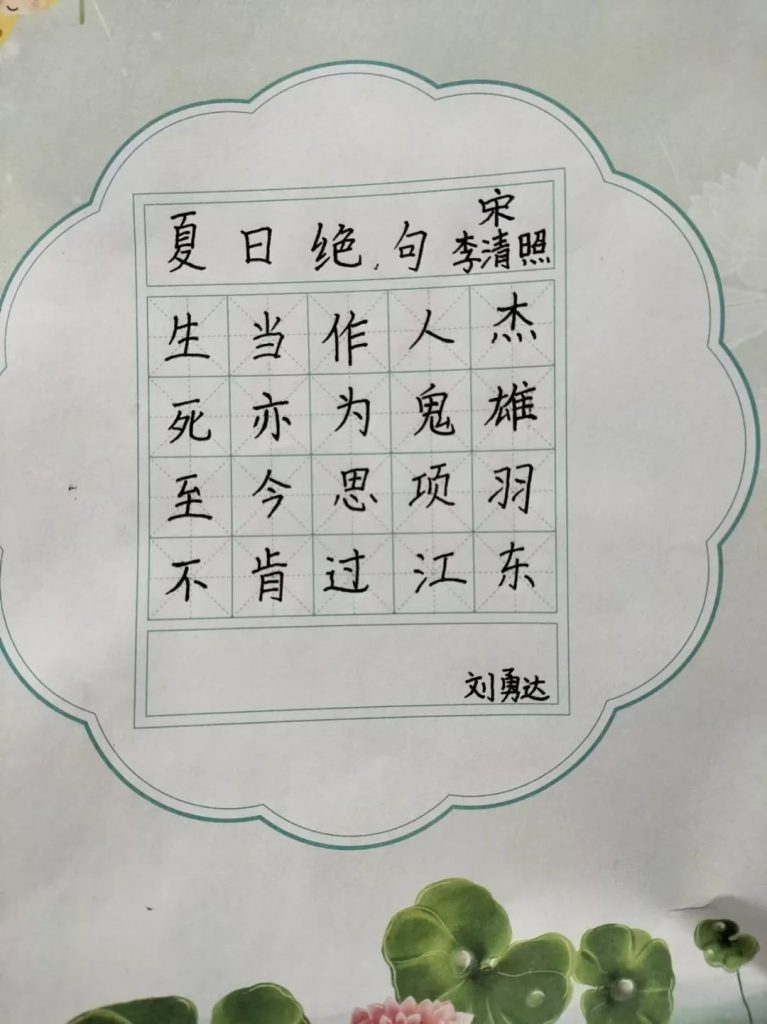 夏日绝句 宋
李清照
生当作人杰
死亦为鬼雄
至今思项羽
不肯过江东
刘勇达